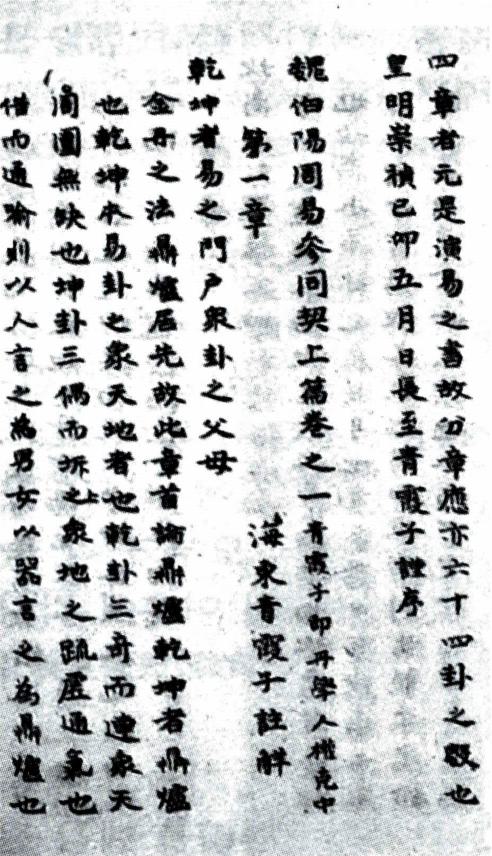 四章者元是演易之書故分章應亦六十四卦之數也
皇明崇禎己卯五月日長至青霞子註序
魏伯陽周易參同契上篇卷之一 青霞子卽丹學人權克中
第一章 海東青霞子註解
乾坤者易之門戶衆卦之父母
金丹之法鼎爐居先故此章首論鼎爐乾坤者鼎爐
也乾坤本易卦之象天地者也乾卦三奇而連象天
圓圍無缺也坤卦三偶而坼之上象地之疏虛通氣也
借而通喩則以人言之為男女以器言之為鼎爐也